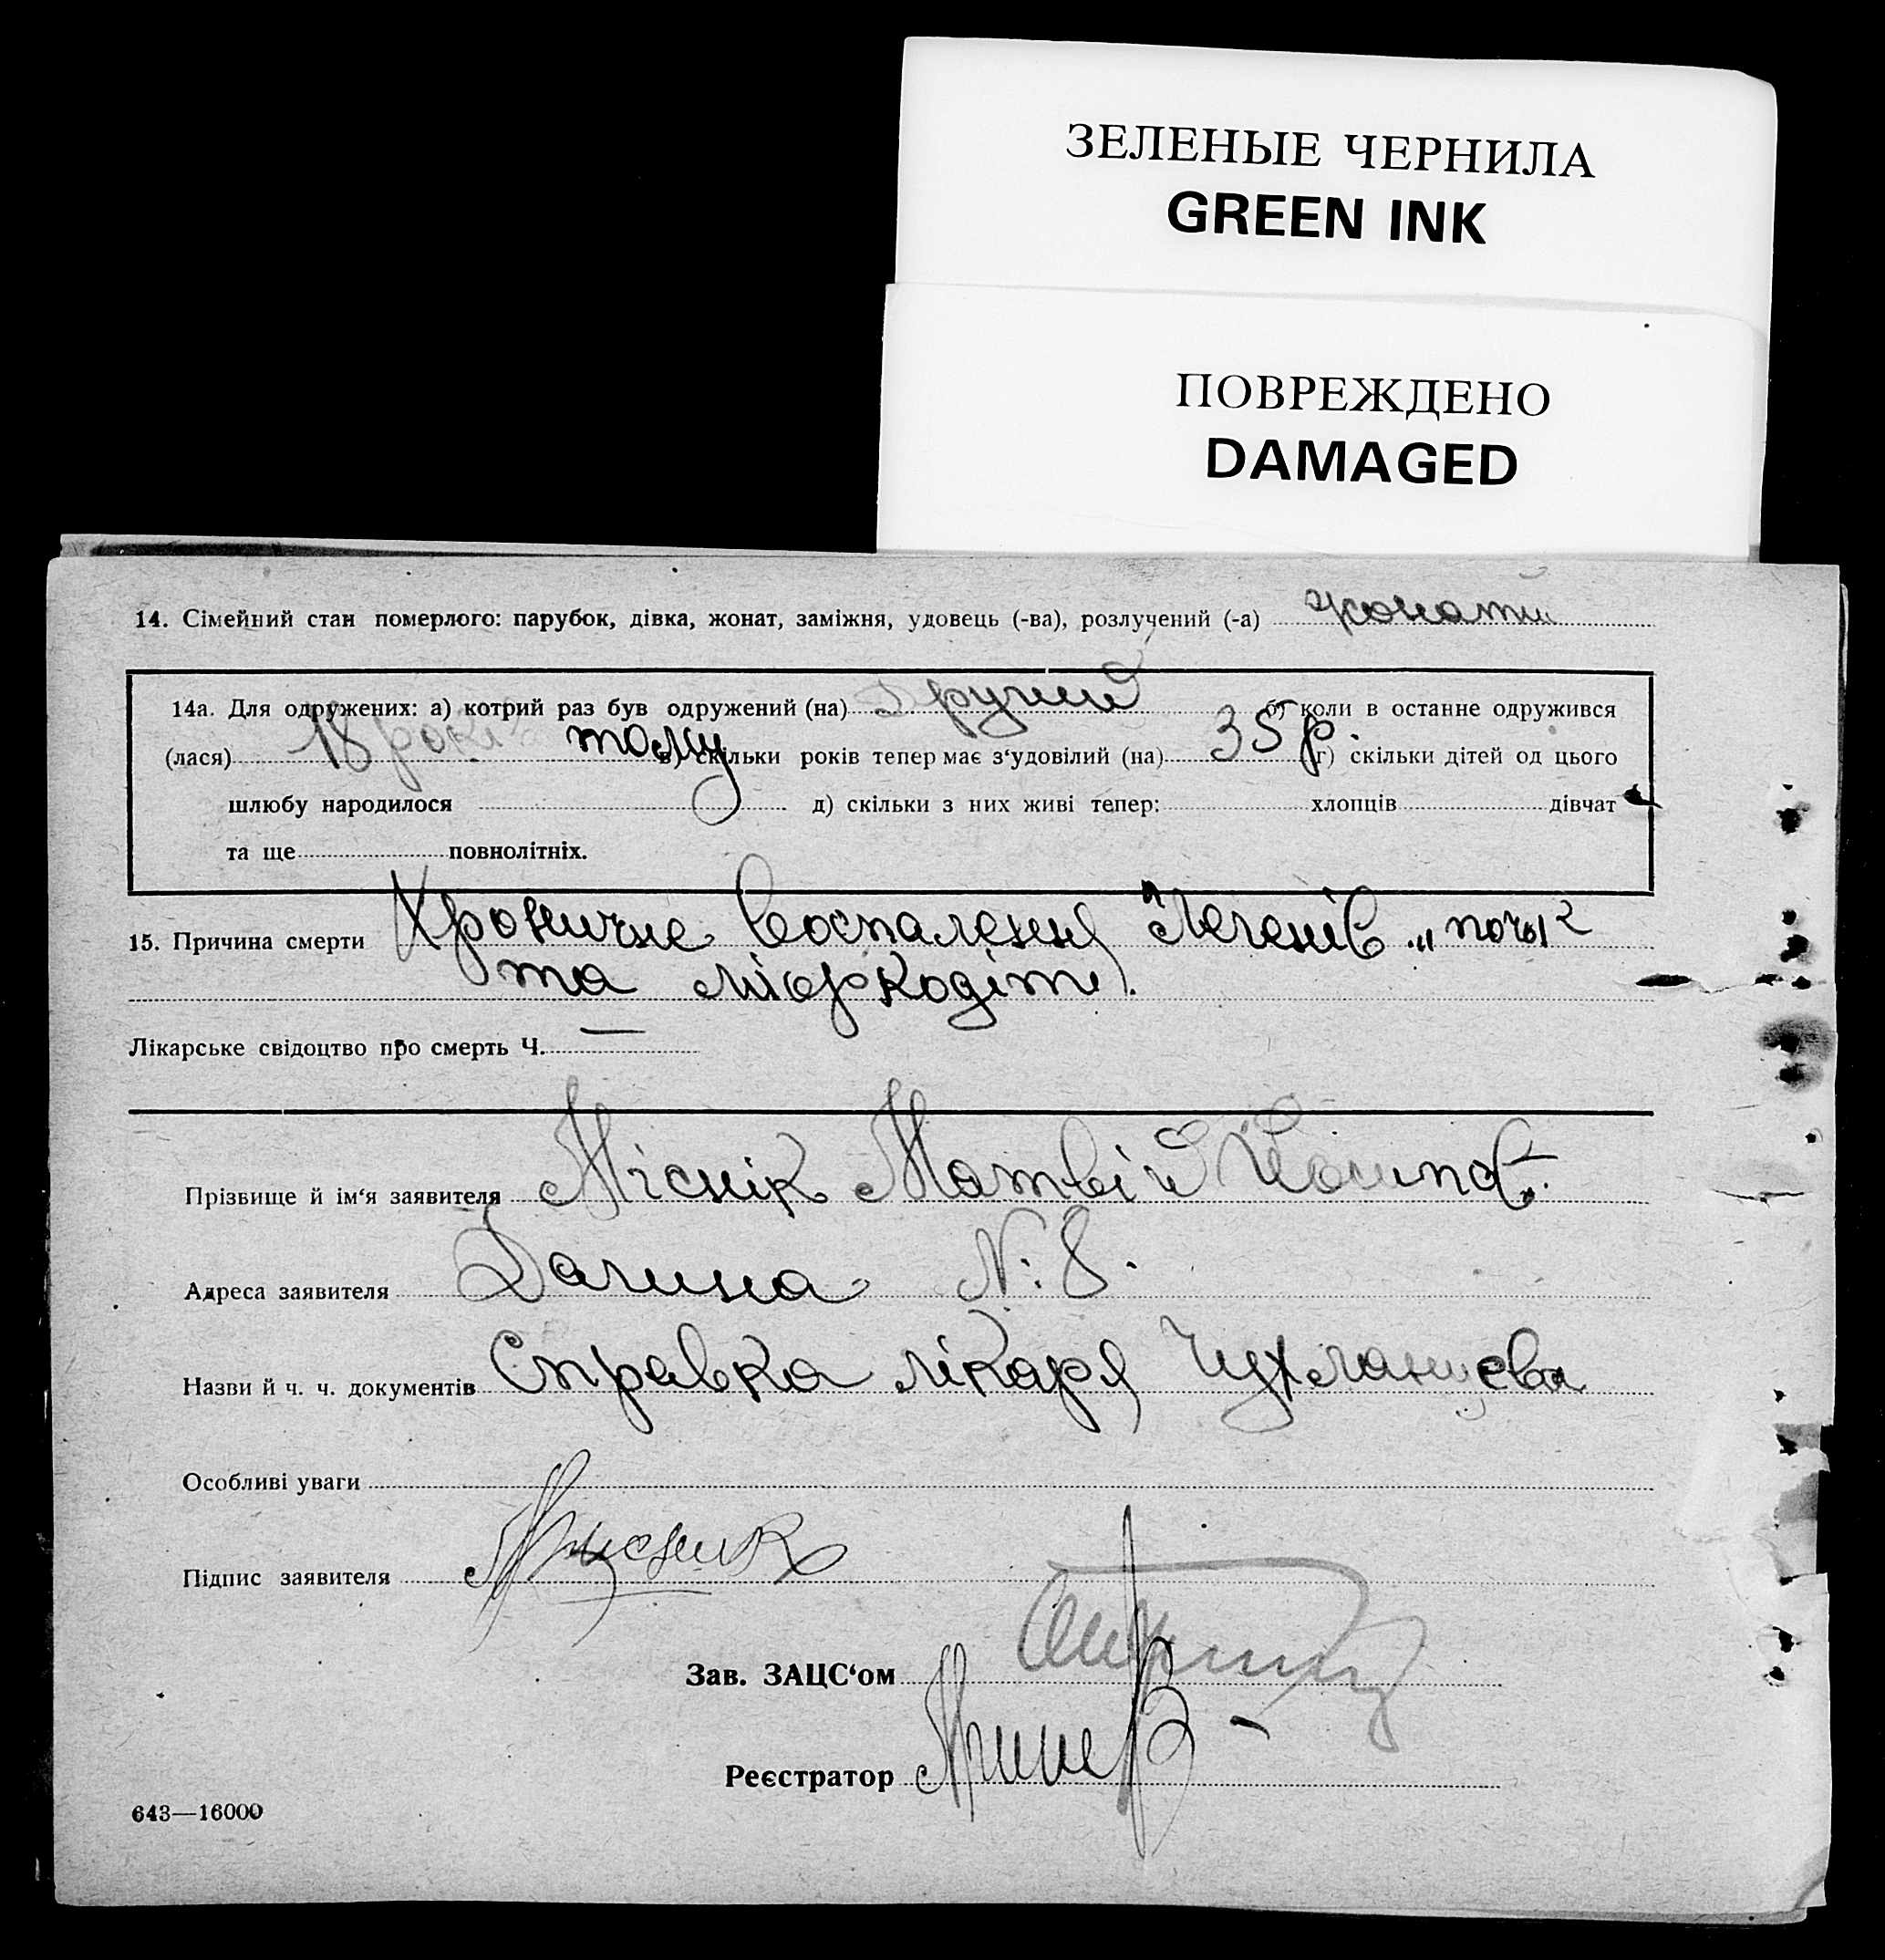 ЗЕЛЕНЫЕ ЧЕРНИЛА
GREEN INK
ПОВРЕЖДЕНО
DAMAGED
14. Сімейний стан померлого: парубок, дівка, жонат, заміжня, удовець (-ва), розлучений (-а) жонатий
14а. Для одружених: а) котрий раз був одружений (на) другий б) коли в останнє одружився
(лася) 18 років тому в) скільки років тепер має з‘удовілий (на) 35 р. г) скільки дітей од цього
шлюбу народилося д) скільки з них живі тепер: хлопців дівчат
та ще повнолітніх.
15. Причина смерти Хроничне воспалення легенів „ почык
та міоркодіт.
Лікарське свідоцтво про смерть Ч. —
Прізвище й ім‘я заявителяМіснік Матвій Йосипов.
Адреса заявителя Дачина N: 8.
Назви й ч. ч. документів Справка лікаря Чухланцева
Особливі уваги
Підпис заявителя Мисник
Зав. ЗАЦС‘ом
Реєстратор
643—16000